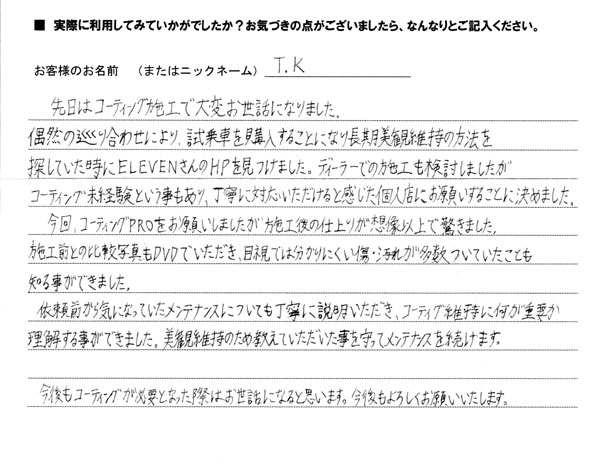 ■ 実際に利用してみていかがでしたか？お気づきの点がございましたら、なんなりとご記入ください。
お客様のお名前　（またはニックネーム）　T.K
先日はコーティング施工で大変お世話になりました。
偶然の巡り合わせにより、試乗車を購入することになり長期美観維持の方法を
探していた時にELEVENさんのHPを見つけました。ディーラーでの施工も検討しましたが
コーティング未経験という事もあり、丁寧に対応いただけると感じた個人店にお願いすることに決めました。
今回、コーティングPROをお願いしましたが施工後の仕上りが想像以上で驚きました。
施工前との比較写真もDVDでいただき、目視では分かりにくい傷・汚れが多数ついていたことも
知る事ができました。
依頼前から気になっていたメンテナンスについても丁寧に説明いただき、コーティグ維持に何が重要か
理解する事ができました。美観維持のため教えていただいた事を守ってメンテナンスを続けます。
今後もコーティングが必要となった際はお世話になると思います。今後もよろしくお願いいたします。